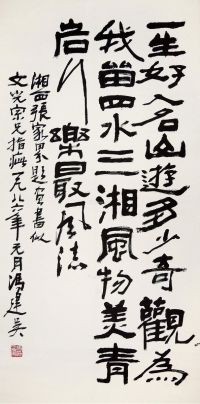 一生好入名山遊多少奇觀為
我留四水三湘風物美青
岩行樂最風流
湘西張家界題壁書似
文光宗兄指疵一九八六年元月馮建吳